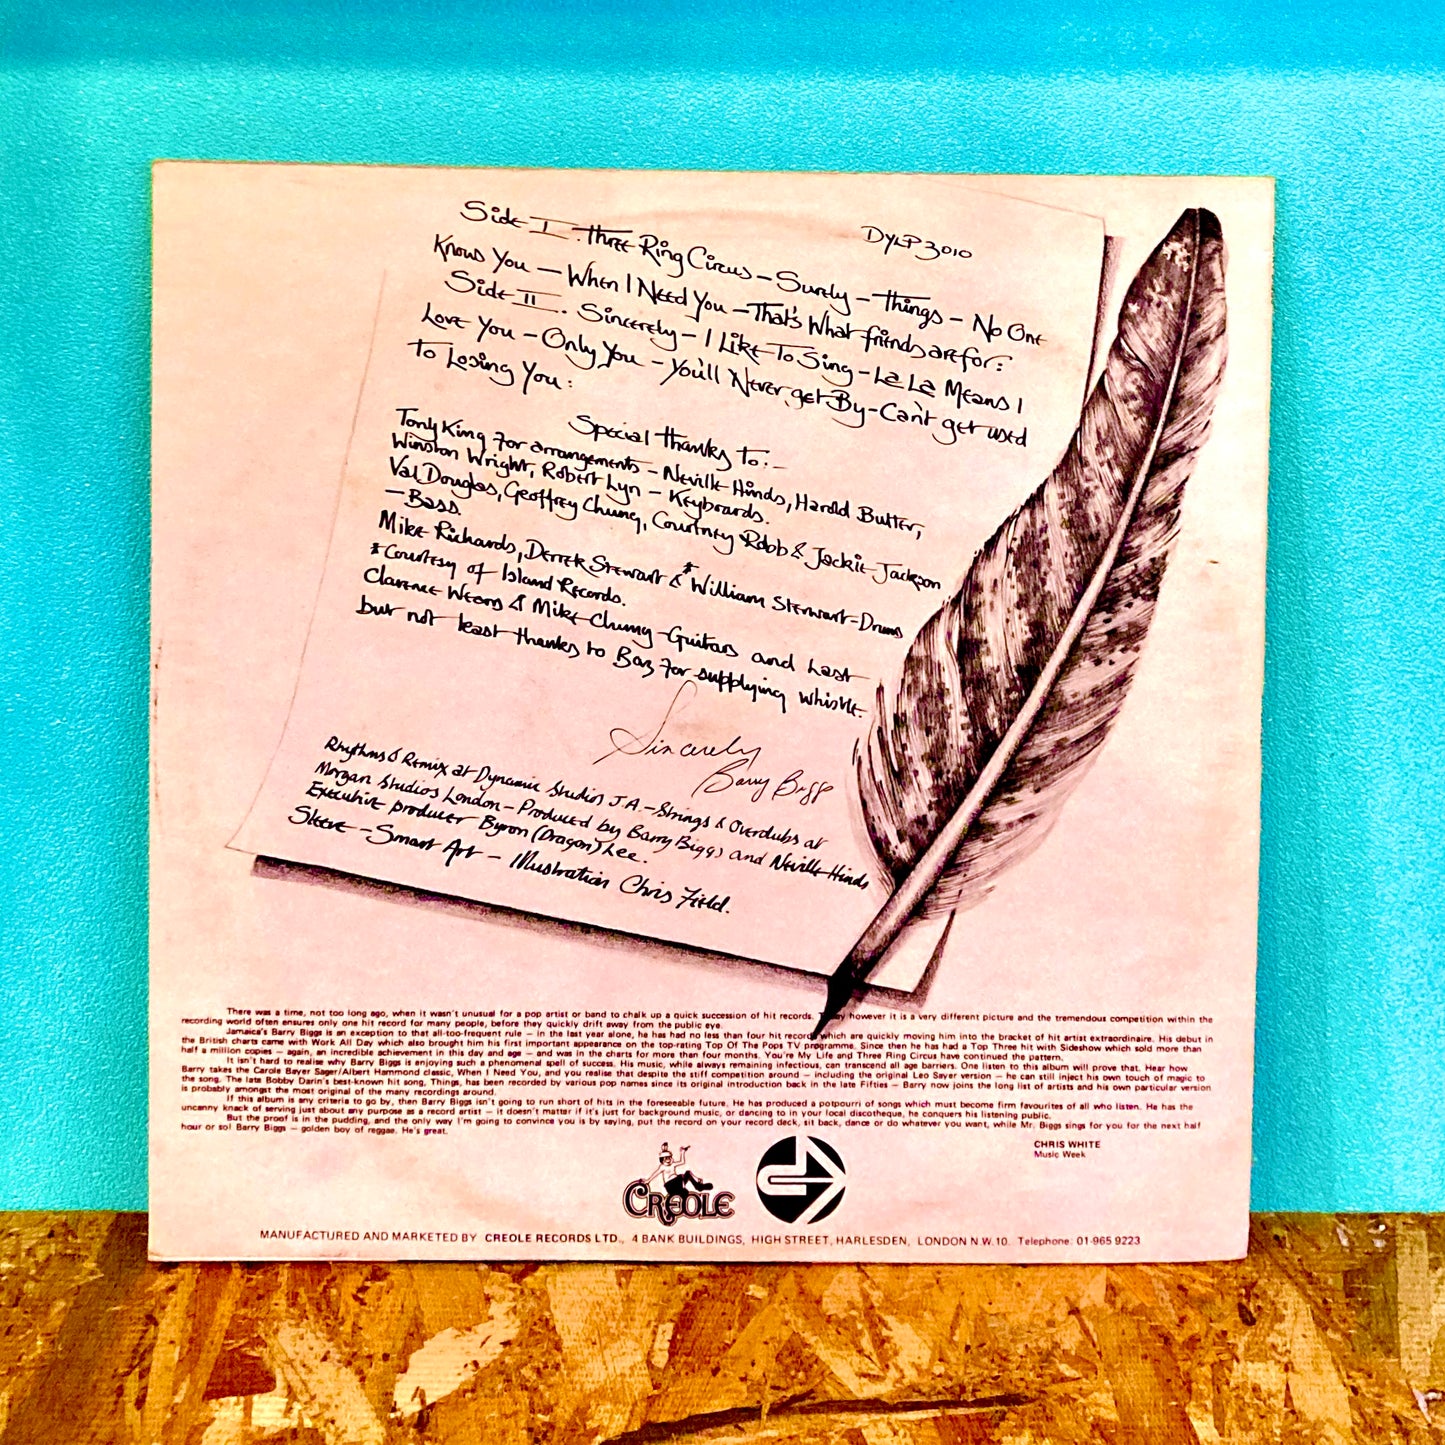 DYLP 3010
Side I. Three Ring Circus – Surely – Things – No One
Knows You – When I Need You – That's What friends are for:
Side II. Sincerely – I Like To Sing – La La Means I
Love You – Only You – You'll Never get By – Can't get used
To Losing You:
Special thanks to:–
Tony King for arrangements – Neville Hinds, Harold Butler,
Winston Wright, Robert Lyn – Keyboards.
Val Douglas, Geoffrey Chung, Courtney Robb & Jackie Jackson
– Bass.
Mike Richards, Derrek Stewart & * William Stewart – Drums
* Courtesy of Island Records.
Clarence Wears & Mike Chung – Guitars and Last
but not least thanks to Baz for supplying whistle.
Sincerely
Barry Biggs
Rhythms & Remix at Dynamic Studios J.A. – Strings & Overdubs at
Morgan Studios London – Produced by Barry Biggs and Neville Hinds
Executive producer Byron (Dragon) Lee.
Sleeve – Smart Art – Illustration Chris Field.
There was a time, not too long ago, when it wasn't unusual for a pop artist or band to chalk up a quick succession of hit records. however it is a very different picture and the tremendous competition within the
recording world often ensures only one hit record for many people, before they quickly drift away from the public eye.
Jamaica's Barry Biggs is an exception to that all-too-frequent rule – in the last year alone, he has had no less than four hit records which are quickly moving him into the bracket of hit artist extraordinaire. His debut in
the British charts came with Work All Day which also brought him his first important appearance on the top-rating Top Of The Pops TV programme. Since then he has had a Top Three hit with Sideshow which sold more than
half a million copies – again, an incredible achievement in this day and age – and was in the charts for more than four months. You're My Life and Three Ring Circus have continued the pattern.
It isn't hard to realise why Barry Biggs is enjoying such a phenomenal spell of success. His music, while always remaining infectious, can transcend all age barriers. One listen to this album will prove that. Hear how
Barry takes the Carole Bayer Sager/Albert Hammond classic, When I Need You, and you realise that despite the stiff competition around – including the original Leo Sayer version – he can still inject his own touch of magic to
the song. The late Bobby Darin's best-known hit song, Things, has been recorded by various pop names since its original introduction back in the late Fifties – Barry now joins the long list of artists and his own particular version
is probably amongst the most original of the many recordings around.
If this album is any criteria to go by, then Barry Biggs isn't going to run short of hits in the foreseeable future. He has produced a potpourri of songs which must become firm favourites of all who listen. He has the
uncanny knack of serving just about any purpose as a record artist – it doesn't matter if it's just for background music, or dancing to in your local discotheque, he conquers his listening public.
But the proof is in the pudding, and the only way I'm going to convince you is by saying, put the record on your record deck, sit back, dance or do whatever you want, while Mr. Biggs sings for you for the next half
hour or so! Barry Biggs – golden boy of reggae. He's great.
CHRIS WHITE
Music Week
CREOLE
MANUFACTURED AND MARKETED BY CREOLE RECORDS LTD., 4 BANK BUILDINGS, HIGH STREET, HARLESDEN, LONDON N.W.10. Telephone: 01-965 9223